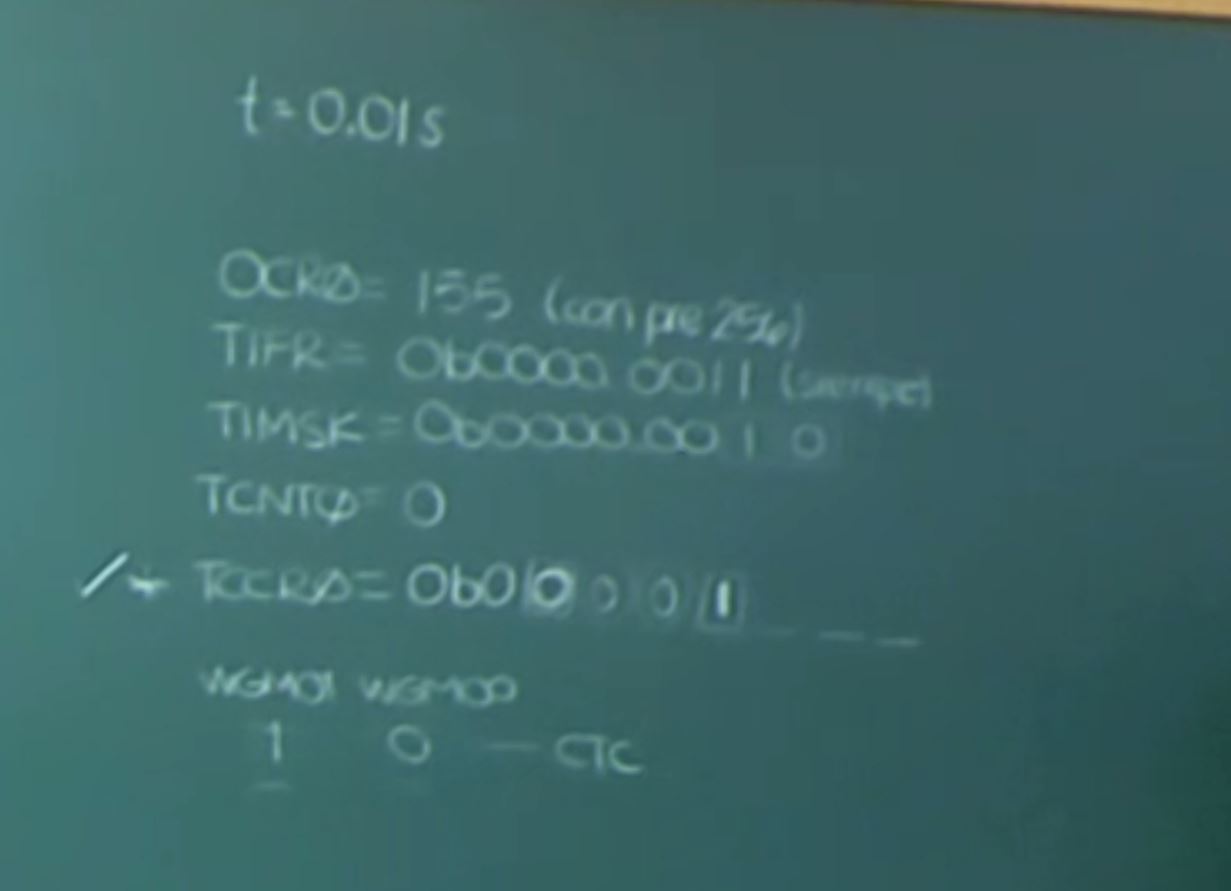 t=0.01s
OCRØ= 155 (con pre 256)
TIFR= 0b0000 0011 (siempre)
TIMSK=0b0000.0010
TCNTØ=0
TCCRØ=0b00001_ _ _
WGM01 WGM00
1 0 — CTC